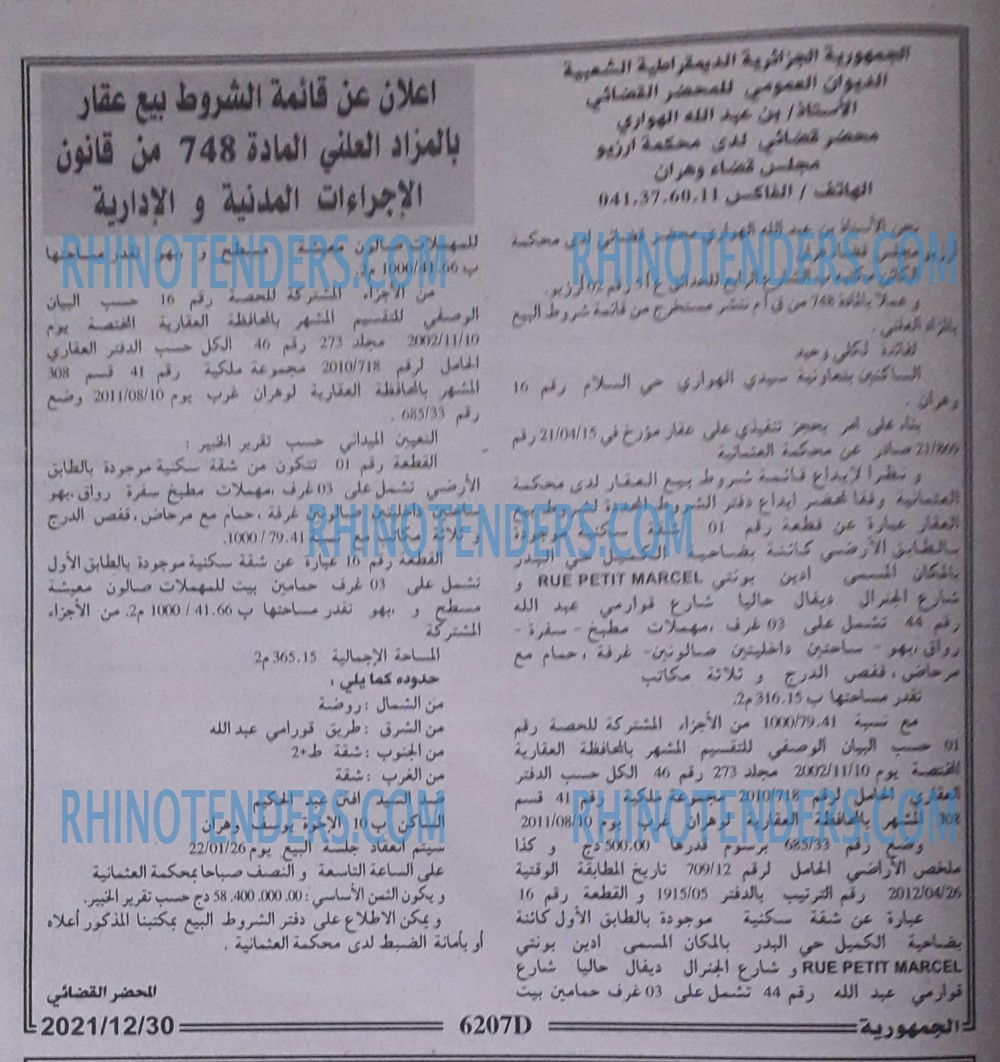 الجمهورية الجزائرية الديمقراطية الشعبية
الديوان العمومي للمحضر القضائي
الأستاذ/ بن عبد الله الهواري
محضر قضائي لدى محكمة ارزيو
مجلس قضاء وهران
الهاتف / الفاكس 041.37.60.11
نحن الأستاذ بن عبد الله الهواري محضر قضائي لدى محكمة
ارزيو مجلس قضاء
الشارع الرابع للحدائق ع 51 رقم 02 ارزيو.
و عملا بالمادة 748 من ق أ م ننشر مستخرج من قائمة شروط البيع
بالمزاد العلني .
لفائدة
الساكنين بتعاونية سيدي الهواري حي السلام رقم 16
وهران .
بناء على امر بحجز تنفيذي على عقار مؤرخ في 21/04/15 رقم
صادر عن محكمة العثمانية
و نظرا لإيداع قائمة شروط بيع العقار لدى محكمة
العثمانية وفقا لمحضر ايداع دفتر الشروط المحددة لشروط بيع
العقار عبارة عن قطعة رقم 01 شقة سكنية موجودة
بالطابق الأرضي كائنة بضاحية الكميل حي البدر
بالمكان المسمى ادين بونتي RUE PETIT MARCEL و
شارع الجنرال ديفال حاليا شارع قوارمي عبد الله
رقم 44 تشمل على 03 غرف ،مهملات مطبخ - سفرة -
رواق،بهو - ساحتين داخليتين صالونين- غرفة ، حمام مع
مرحاض، قفص الدرج و ثلاثة مكاتب
تقدر مساحتها ب 316.15 م2.
مع نسبة 1000/79.41 من الأجزاء المشتركة للحصة رقم
01 حسب البيان الوصفي للتقسيم المشهر بالمحافظة العقارية
المختصة يوم 2002/11/10 مجلد 273 رقم 46 الكل حسب الدفتر
العقاري الحامل لرقم 2010/718 مجموعة ملكية رقم 41 قسم
308 المشهر بالمحافظة العقارية لوهران غرب يوم 2011/08/10
وضع رقم 685/33 برسوم قدرها 500.00 دج و كذا
ملخص الأراضي الحامل لرقم 709/12 تاريخ المطابقة الوقتية
2012/04/26 رقم الترتيب بالدفتر 1915/05 و القطعة رقم 16
عبارة عن شقة سكنية موجودة بالطابق الأول كائنة
بضاحية الكميل حي البدر بالمكان المسمى ادين بونتي
RUE PETIT MARCEL و شارع الجنرال ديفال حاليا شارع
قوارمي عبد الله رقم 44 تشمل على 03 غرف حمامين بيت
اعلان عن قائمة الشروط بيع عقار
بالمزاد العلني المادة 748 من قانون
الإجراءات المدنية و الإدارية
للمهملات صالون معيشة مسطح و ،بهو تقدر مساحتها
ب 1000/41.66 م2.
من الأجزاء المشتركة للحصة رقم 16 حسب البيان
الوصفي للتقسيم المشهر بالمحافظة العقارية المختصة يوم
2002/11/10 مجلد 273 رقم 46 الكل حسب الدفتر العقاري
الحامل لرقم 2010/718 مجموعة ملكية رقم 41 قسم 308
المشهر بالمحافظة العقارية لوهران غرب يوم 2011/08/10 وضع
رقم 685/33 .
التعيين الميداني حسب تقرير الخبير :
القطعة رقم 01 تتكون من شقة سكنية موجودة بالطابق
الأرضي تشمل على 03 غرف ،مهملات مطبخ سفرة رواق،بهو
ساحتين داخليتين صالونين غرفة ، حمام مع مرحاض، قفص الدرج
و ثلاثة مكاتب مع نسبة 1000/79.41.
القطعة رقم 16 عبارة عن شقة سكنية موجودة بالطابق الأول
تشمل على 03 غرف حمامين بيت للمهملات صالون معيشة
مسطح و ،بهو تقدر مساحتها ب 1000/41.66 م2. من الأجزاء
المشتركة
المساحة الإجمالية 365.15 م2
حدوده كما يلي :
من الشمال : روضة
من الشرق : طريق قورامي عبد الله
من الجنوب : شقة ط+2
من الغرب : شقة
ضد السيد عبد الحكيم
الساكن ب 10 الإخوة يوسف وهران
سيتم انعقاد جلسة البيع يوم 22/01/26
على الساعة التاسعة و النصف صباحا بمحكمة العثمانية
و يكون الثمن الأساسي : 58.400.000.00 دج حسب تقرير الخبير.
و يمكن الاطلاع على دفتر الشروط البيع بمكتبنا المذكور أعلاه
أو بأمانة الضبط لدى محكمة العثمانية .
المحضر القضائي
الجمهورية 6207D 2021/12/30
RHINOTENDERS.COM
RHINOTENDERS.COM
RHINOTENDERS.COM
RHINOTENDERS.COM
RHINOTENDERS.COM